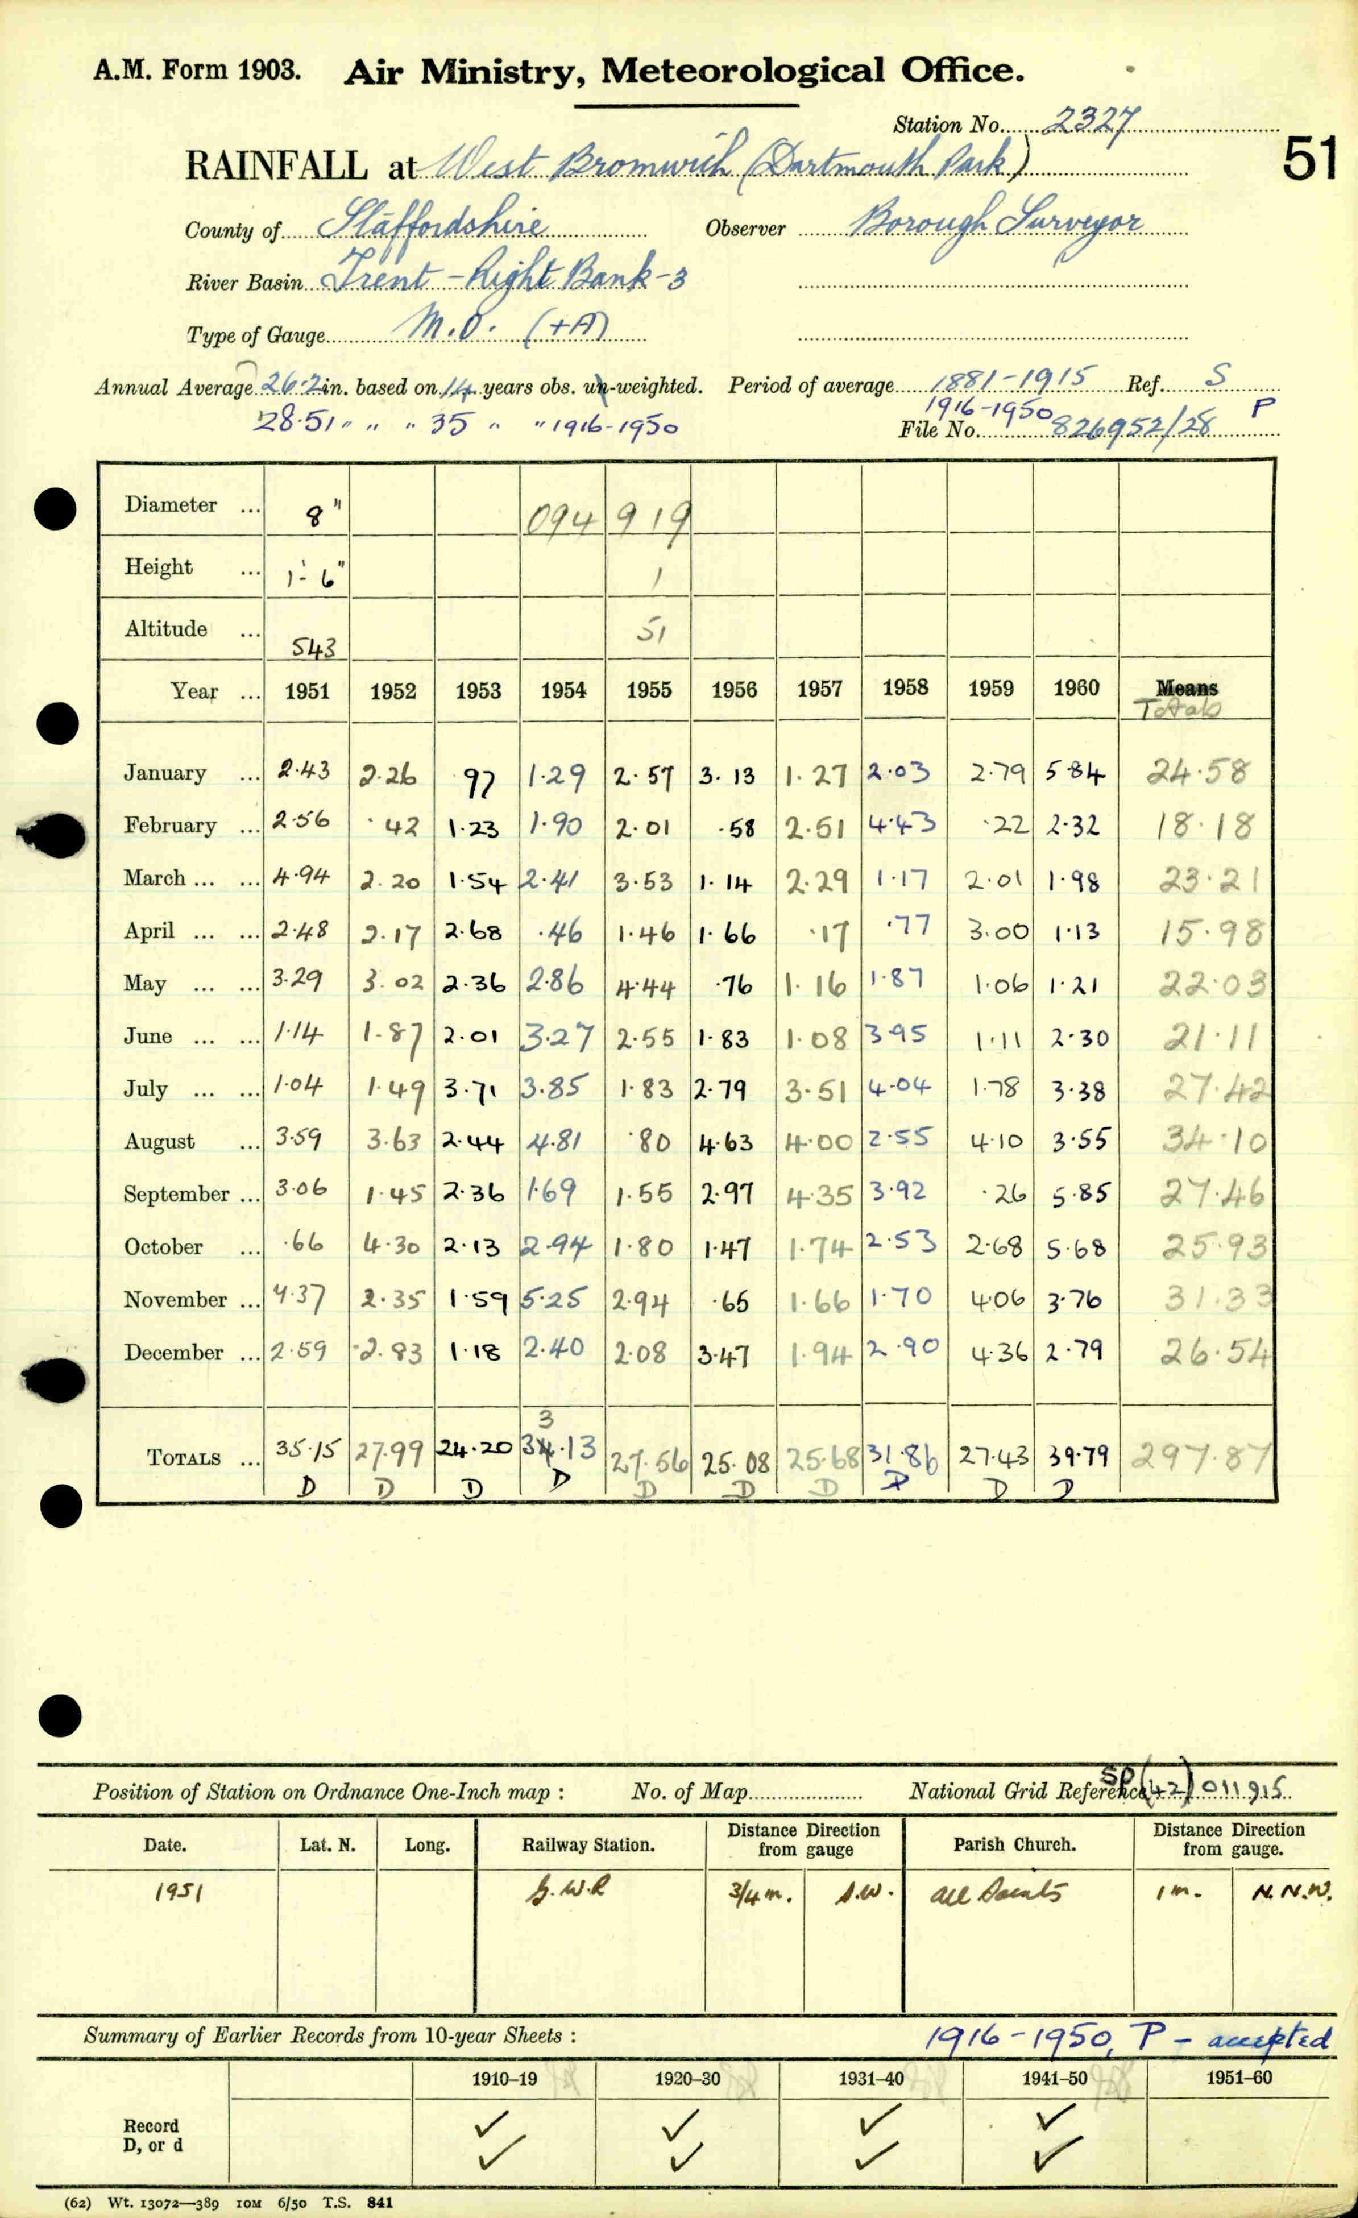 A.M. Form 1903. Air Ministry, Meteorological Office.
Station No. 2327
51
RAINFALL at West Bromwich (Dartmouth Park)
County of Staffordshire Observer Borough Surveyor
River Basin Trent - Right Bank - 3
Type of Gauge M.O. (+A)
Annual Average 26.2 in. based on 14 years obs. un-weighted. Period of average 1881-1915 Ref. S
28.51 " " " 35 " " 1916-1950 1916-1950 P
File No. 826952/28
Diameter ... 8" 094 919
Height ... 1'-6" 1
Altitude ... 543 51
Year ... 1951 1952 1953 1954 1955 1956 1957 1958 1959 1960 Means
Totals
January ... 2.43 2.26 .97 1.29 2.57 3.13 1.27 2.03 2.79 5.84 24.58
February ... 2.56 .42 1.23 1.90 2.01 .58 2.51 4.43 .22 2.32 18.18
March ... ... 4.94 2.20 1.54 2.41 3.53 1.14 2.29 1.17 2.01 1.98 23.21
April ... ... 2.48 2.17 2.68 .46 1.46 1.66 .17 .77 3.00 1.13 15.98
May ... ... 3.29 3.02 2.36 2.86 4.44 .76 1.16 1.87 1.06 1.21 22.03
June ... ... 1.14 1.87 2.01 3.27 2.55 1.83 1.08 3.95 1.11 2.30 21.11
July ... ... 1.04 1.49 3.71 3.85 1.83 2.79 3.51 4.04 1.78 3.38 27.42
August ... 3.59 3.63 2.44 4.81 .80 4.63 4.00 2.55 4.10 3.55 34.10
September ... 3.06 1.45 2.36 1.69 1.55 2.97 4.35 3.92 .26 5.85 27.46
October ... .66 4.30 2.13 2.94 1.80 1.47 1.74 2.53 2.68 5.68 25.93
November ... 4.37 2.35 1.59 5.25 2.94 .65 1.66 1.70 4.06 3.76 31.33
December ... 2.59 2.83 1.18 2.40 2.08 3.47 1.94 2.90 4.36 2.79 26.54
3
TOTALS ... 35.15 27.99 24.20 34.13 27.56 25.08 25.68 31.86 27.43 39.79 297.87
D D D D D D D D D D
Position of Station on Ordnance One-Inch map : No. of Map National Grid Reference SP (42) 011915
Date. Lat. N. Long. Railway Station. Distance Direction from gauge Parish Church. Distance Direction from gauge.
1951 G.W.R 3/4 m. S.W. All Saints 1 m. N.N.W.
Summary of Earlier Records from 10-year Sheets : 1916-1950, P - accepted
1910–19 1920–30 1931–40 1941–50 1951–60
Record ✓ ✓ ✓ ✓
D, or d ✓ ✓ ✓ ✓
(62) Wt. 13072—389 10M 6/50 T.S. 841